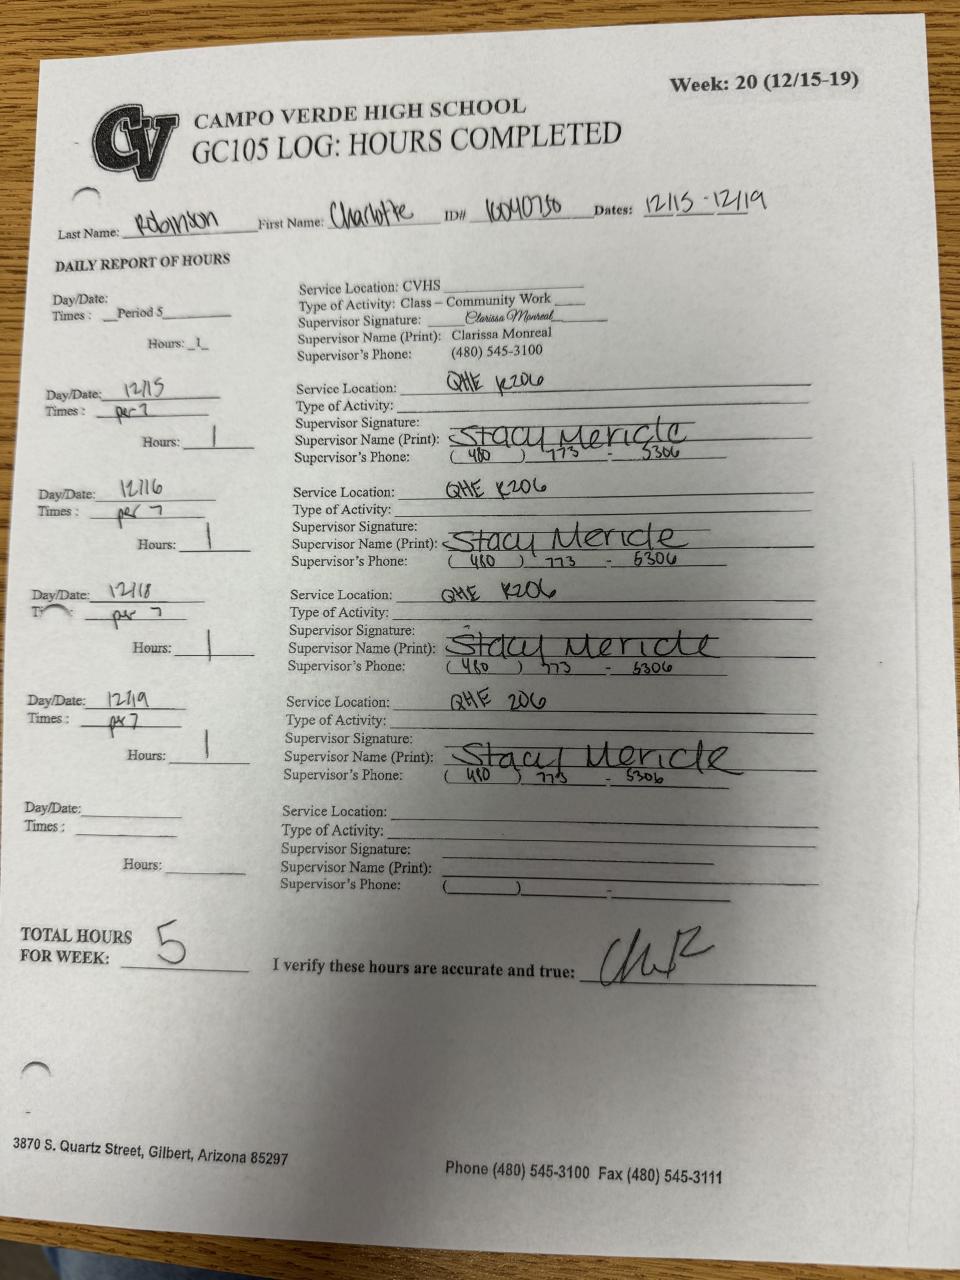 Week: 20 (12/15-19)
CV
CAMPO VERDE HIGH SCHOOL
GC105 LOG: HOURS COMPLETED
Last Name: Robinson First Name: Charlotte ID# 16040750 Dates: 12/15 - 12/19
DAILY REPORT OF HOURS
Day/Date:
Times: Period 5
Hours: 1
Service Location: CVHS
Type of Activity: Class – Community Work
Supervisor Signature: Clarissa Monreal
Supervisor Name (Print): Clarissa Monreal
Supervisor's Phone: (480) 545-3100
Day/Date: 12/15
Times: per 7
Hours: 1
Service Location: QHE K206
Type of Activity:
Supervisor Signature:
Supervisor Name (Print): Stacy Mericle
Supervisor's Phone: (480) 773 - 5306
Day/Date: 12/16
Times: per 7
Hours: 1
Service Location: QHE K206
Type of Activity:
Supervisor Signature:
Supervisor Name (Print): Stacy Mericle
Supervisor's Phone: (480) 773 - 5306
Day/Date: 12/18
per 7
Hours: 1
Service Location: QHE K206
Type of Activity:
Supervisor Signature:
Supervisor Name (Print): Stacy Mericle
Supervisor's Phone: (480) 773 - 5306
Day/Date: 12/19
Times: per 7
Hours: 1
Service Location: QHE 206
Type of Activity:
Supervisor Signature:
Supervisor Name (Print): Stacy Mericle
Supervisor's Phone: (480) 773 - 5306
Day/Date:
Times:
Hours:
Service Location:
Type of Activity:
Supervisor Signature:
Supervisor Name (Print):
Supervisor's Phone: ( ) -
TOTAL HOURS
FOR WEEK: 5
I verify these hours are accurate and true:
3870 S. Quartz Street, Gilbert, Arizona 85297
Phone (480) 545-3100 Fax (480) 545-3111